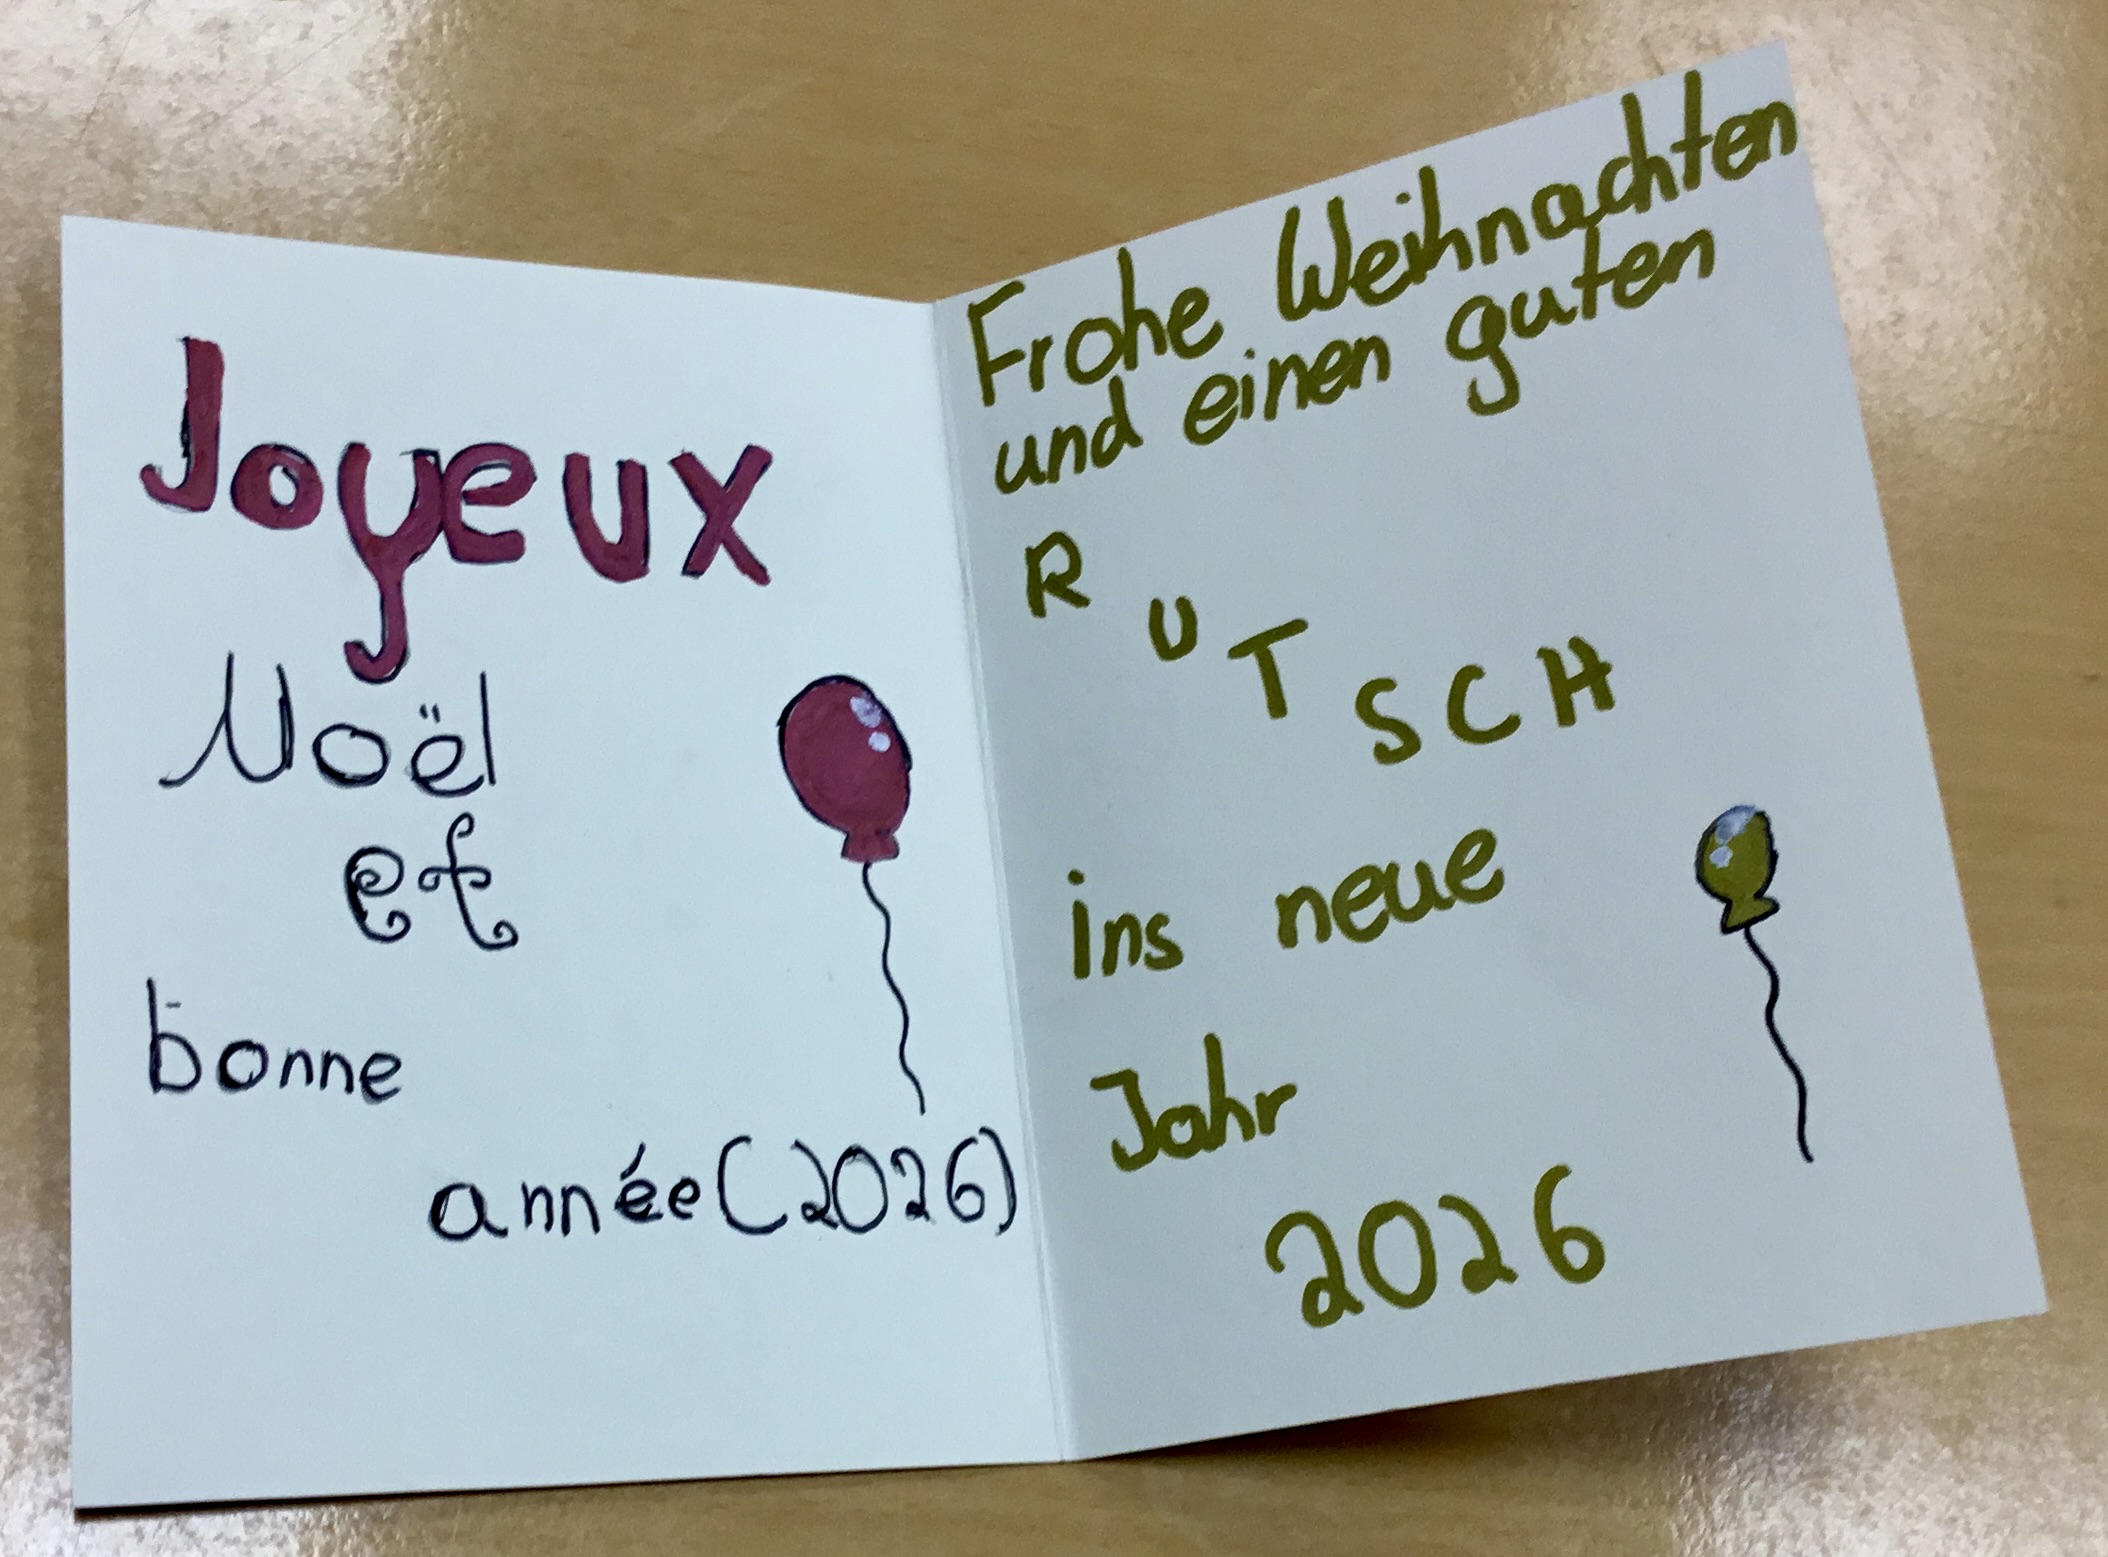 Joyeux
Noël
et
bonne
année (2026)
Frohe Weihnachten
und einen guten
RUTSCH
ins neue
Jahr
2026